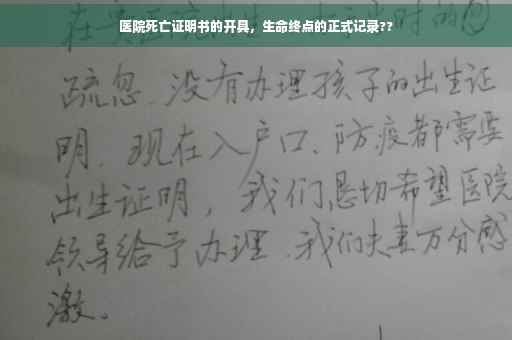 医院死亡证明书的开具，生命终点的正式记录??
疏忽、没有办理孩子的出生证
明、现在入户口、防疫都需要
出生证明，我们恳切希望医院
领导给予办理、我们夫妻万分感
激。